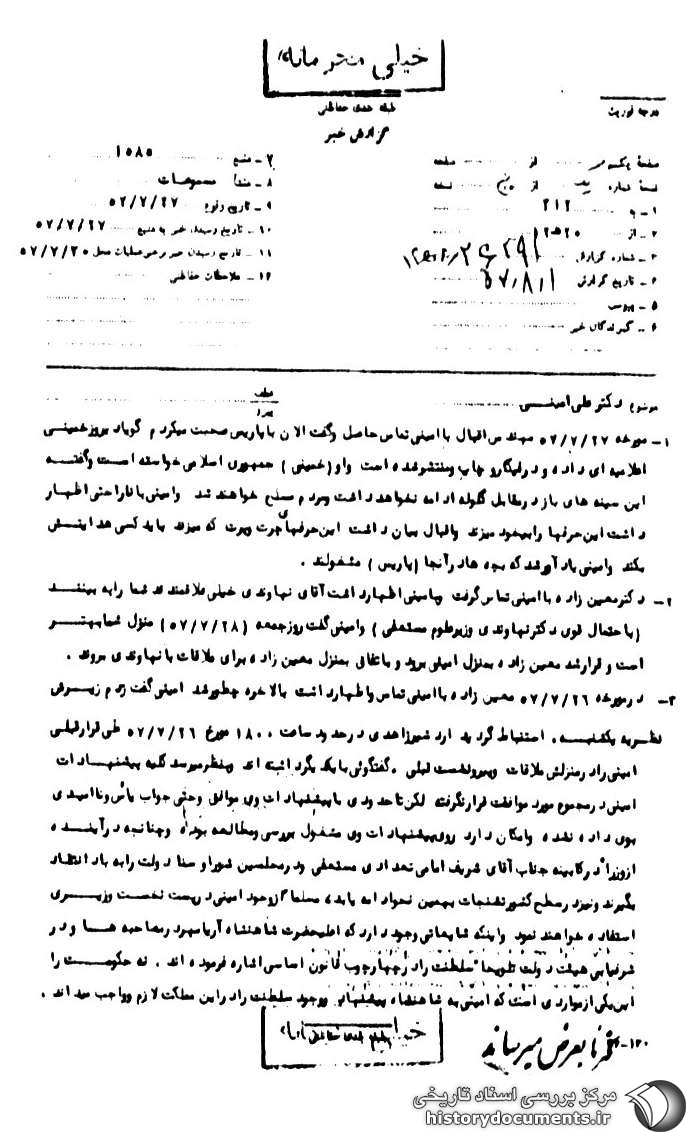 خیلی محرمانه
طبقه بندی حفاظتی
گزارش خبر
درجه فوریت
صفحه یک از صفحه
نسخه شماره از نسخه
۱ - به ۲۱۲
۲ - از ۱۲ ه‍ ۲۰
۳ - شماره گزارش
۴ - تاریخ گزارش ۵۷/۸/۱
۵ - پیوست
۶ - گیرندگان خبر
۷ - منبع ۱۵۸۵
۸ - منشأ مسموعات
۹ - تاریخ وقوع ۵۷/۷/۲۷
۱۰ - تاریخ رسیدن خبر به منبع ۵۷/۷/۲۷
۱۱ - تاریخ رسیدن خبر به رهبر عملیات محل ۵۷/۷/۳۰
۱۲ - ملاحظات حفاظتی
موضوع دکتر علی امینی
عطف
پیرو
۱- مورخه ۵۷/۷/۲۷ مهندس اقبال با امینی تماس حاصل و گفت الان با پاریس صحبت میکردم گویا دیروز خمینی
اعلامیه ای داده و در فیگارو چاپ و منتشر شده است و او (خمینی) جمهوری اسلامی خواسته است و گفته
این سینه های باز در مقابل گلوله ادامه نخواهد داشت و مردم مسلح خواهند شد وامینی با ناراحتی اظهار
داشت این حرفها را بیخود میزند و اقبال بیان داشت این حرفهای چرت و پرت که میزند باید کسی هدایتش
بکند وامینی یادآور شد که بچه ها در آنجا (پاریس) مشغولند .
۲- دکتر معین زاده با امینی تماس گرفت وبامینی اظهار داشت آقای نهاوندی خیلی علاقمندند شما را به بینند
(با احتمال قوی دکتر نهاوندی وزیر علوم مستعفی) وامینی گفت روز جمعه (۵۷/۷/۲۸) منزل شما بهتر
است و قرار شد معین زاده بمنزل امینی برود و باتفاق بمنزل معین زاده برای ملاقات با نهاوندی بروند .
۳- در مورخه ۵۷/۷/۲۶ معین زاده با امینی تماس واظهار داشت بالاخره چطور شد امینی گفت زدم زیرش
نظریه یکشنبه . استنباط گردید اردشیر زاهدی در حدود ساعت ۱۸۰۰ مورخ ۵۷/۷/۲۶ طی قرار قبلی
امینی را در منزلش ملاقات وپیرو نشست قبلی . گفتگوئی با یکدیگر داشته اند وبنظر میرسد کلیه پیشنهادات
امینی در مجموع مورد موافقت قرار نگرفته لکن تا حدودی با پیشنهادات وی موافق وحتی جواب یأس و ناامیدی
بوی داده نشده وامکان دارد روی پیشنهادات وی مشغول بررسی و مطالعه بوده و چنانچه در آینده
از وزراء در کابینه جناب آقای شریف امامی تعدادی مستعفی ودر مجلسین شورا و سنا دولت را به باد انتقاد
بگیرند ونیز در سطح کشور تشنجات بهمین نحو ادامه یابد ، مسلما از وجود امینی در پست نخست وزیری
استفاده خواهند نمود واینکه شایعاتی وجود دارد که اعلیحضرت شاهنشاه آریامهر در مصاحبه ها و در
شرفیابی هیئت دولت تلویحا" سلطنت را در چهارچوب قانون اساسی اشاره فرموده اند . نه حکومت را
این یکی از مواردی است که امینی به شاهنشاه پیشنهاد ووجود سلطنت را در این مملکت لازم و واجب میداند .
بعرض میرساند
طبقه بندی حفاظتی
مرکز بررسی اسناد تاریخی
historydocuments.ir